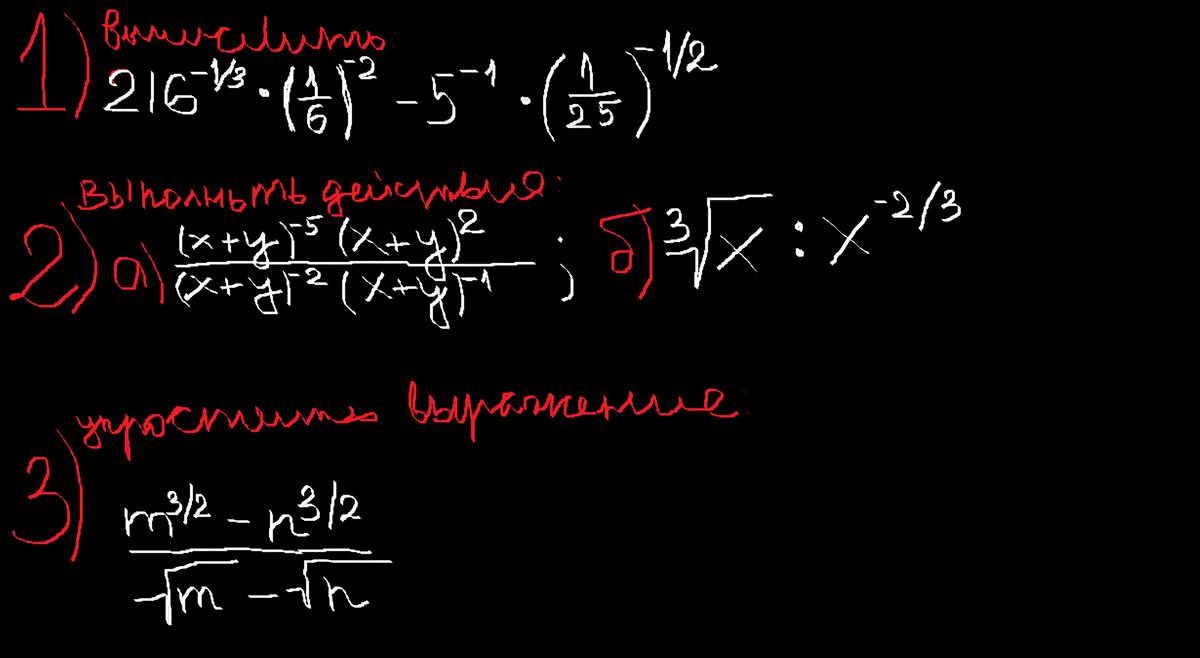 1) вычислить
216^{-1/3} · (1/6)^{-2} - 5^{-1} · (1/25)^{-1/2}
Выполнить действия:
2) а) \frac{(x+y)^{-5} (x+y)^2}{(x+y)^{-2} (x+y)^{-1}} ; б) \sqrt[3]{x} : x^{-2/3}
упростить выражение:
3) \frac{m^{3/2} - n^{3/2}}{\sqrt{m} - \sqrt{n}}